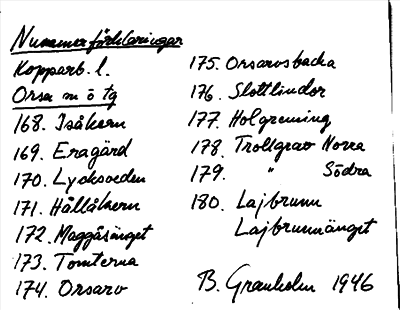 Nummerförklaringar
Kopparb. l.
Orsa m ö tg
168. Isåkern
169. Eragärd
170. Lycksveden
171. Hållåkern
172. Maggåsänget
173. Tomterna
174. Orsarv
175. Orsarvsbacka
176. Slottlindor
177. Holgrening
178. Trollgrav Norra
179. " Södra
180. Lajbrunn
Lajbrunnänget
B. Granholm 1946